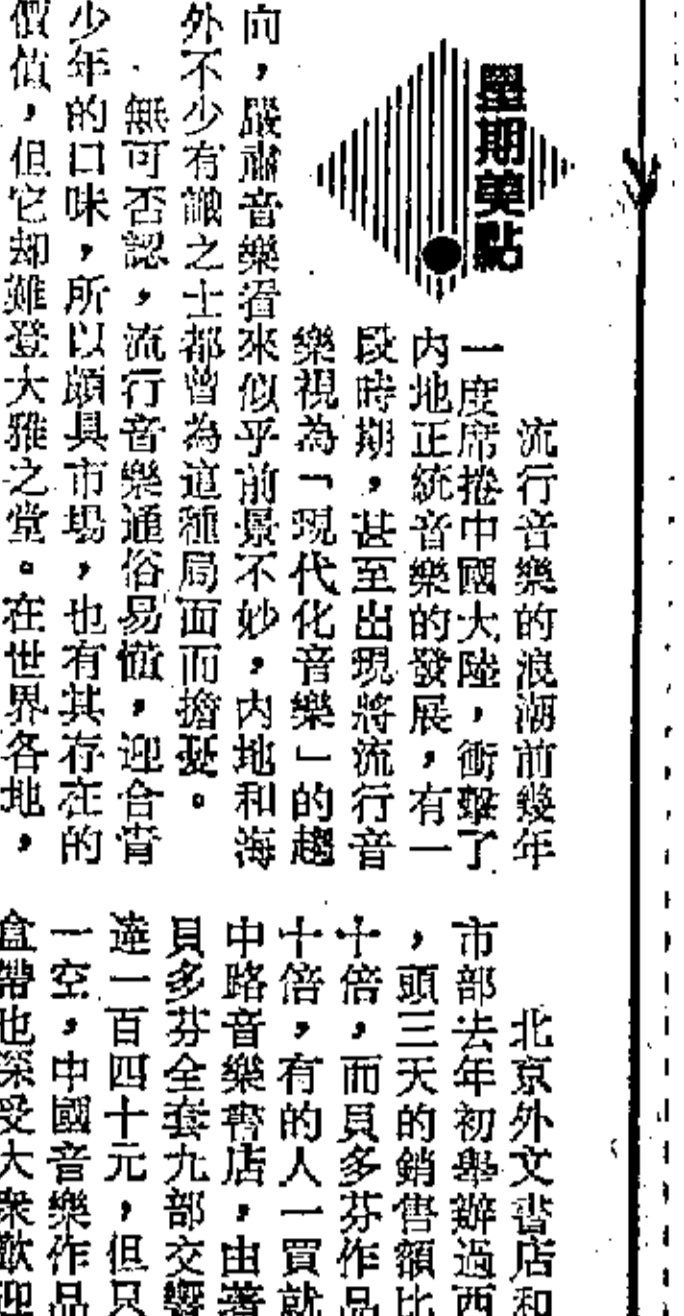 星期美點
流行音樂的浪潮前幾年
一度席捲中國大陸，衝擊了
内地正統音樂的發展，有一
段時期，甚至出現將流行音
樂視為「現代化音樂」的趨
向，嚴肅音樂看來似乎前景不妙，内地和海
外不少有識之士都曾為這種局面而擔憂。
無可否認，流行音樂通俗易懂，迎合青
少年的口味，所以頗具市場，也有其存在的
價值，但它却難登大雅之堂。在世界各地，
北京外文書店和
市部去年初舉辦過西
，頭三天的銷售額比
十倍，而貝多芬作品
十倍，有的人一買就
中路音樂書店，由著
貝多芬全套九部交響
達一百四十元，但只
一空，中國音樂作品
盒帶也深受大衆歡迎